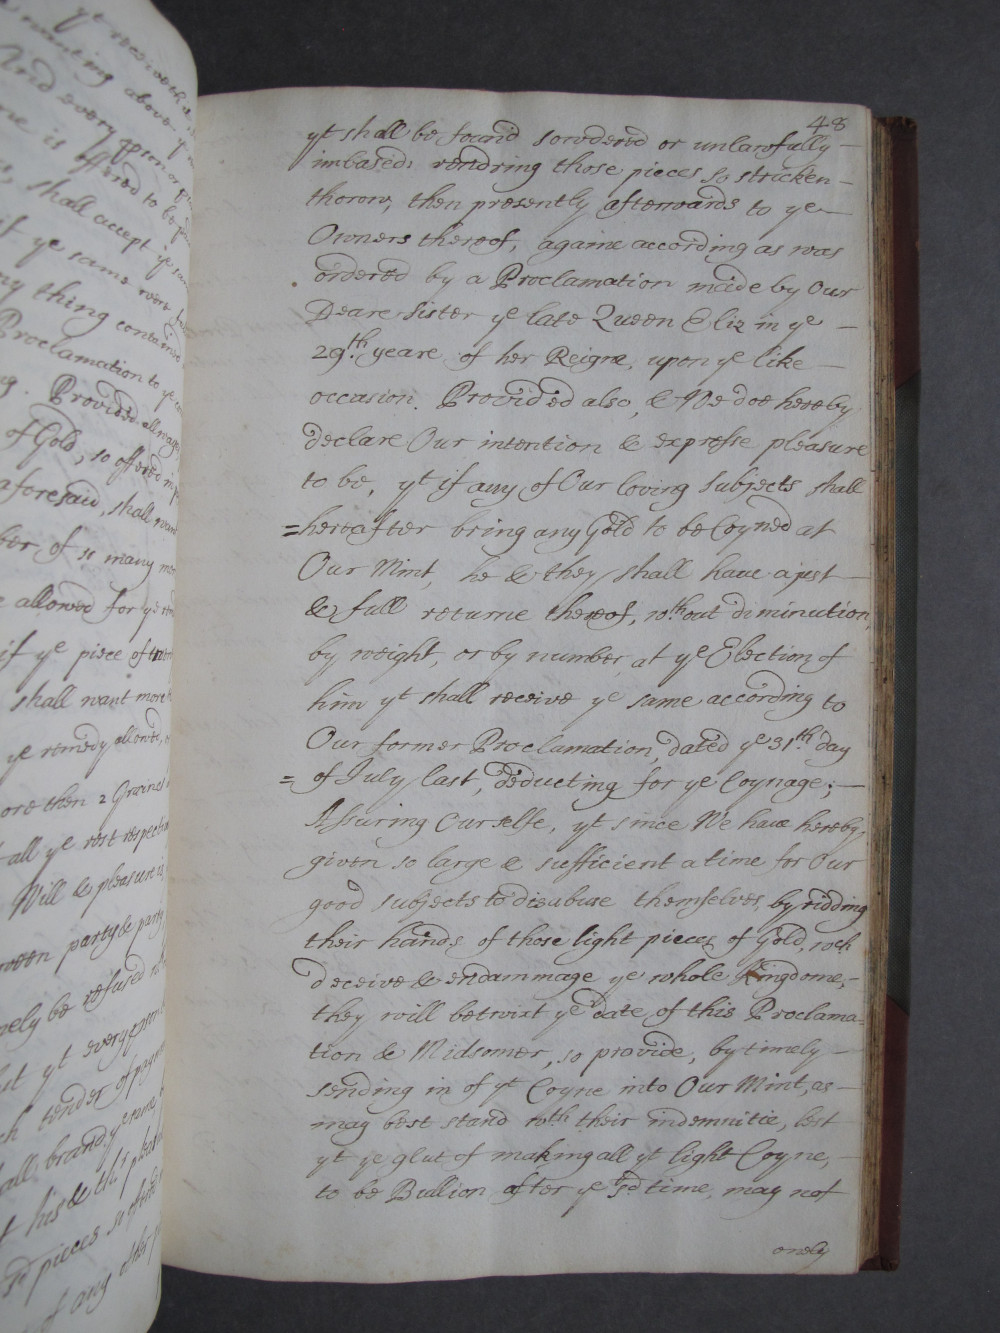 ye receiveth
wanting above
And every pson or
me is offered to be
shall accept ye sam
if ye same were
ny thing contained
Proclamation to ye
ng. Provided allwayes
of Gold, so offered in
aforesaid, shall want
ber, of so many mo
e allowed for ye
if ye piece of
shall want more
ye remedy allowed,
ore then 2 Graines
all ye rest respectiv
Will & pleasure is
ween party & party
nely be refused
yt every pson
ch tender of paym
all brand ye same
t his & their pleas
sd pieces so offered
of any other
48
yt shall be found sowdered or unlawfully
imbased: rendring those pieces so stricken
thorow, then presently afterwards to ye
Owners thereof, againe according as was
ordered by a Proclamation made by Our
Deare Sister ye late Queen Eliz in ye
29th yeare of her Reigne, upon ye like
occasion. Provided also, & We doe hereby
declare Our intention & expresse pleasure
to be, yt if any of Our loving Subjects shall
=hereafter bring any Gold to be Coyned at
Our Mint, he & they shall have a just
& full returne thereof, wth out diminution,
by weight, or by number, at ye Election of
him yt shall receive ye same according to
Our former Proclamation, dated ye 31th day
= of July last, deducting for ye Coynage;
Assuring Our selfe, yt since We have hereby
given so large & sufficient a time for Our
good subjects to disubuse themselves, by ridding
their hands of those light pieces of Gold, wch
deceive & endammage ye whole Kingdome,
they will betwixt ye date of this Proclama=
tion & Midsomer, so provide, by timely
sending in of yt Coyne into Our Mint, as
may best stand wth their indemnitie, lest
yt ye glut of making all yt light Coyne,
to be Bullion after ye sd time, may not
onely